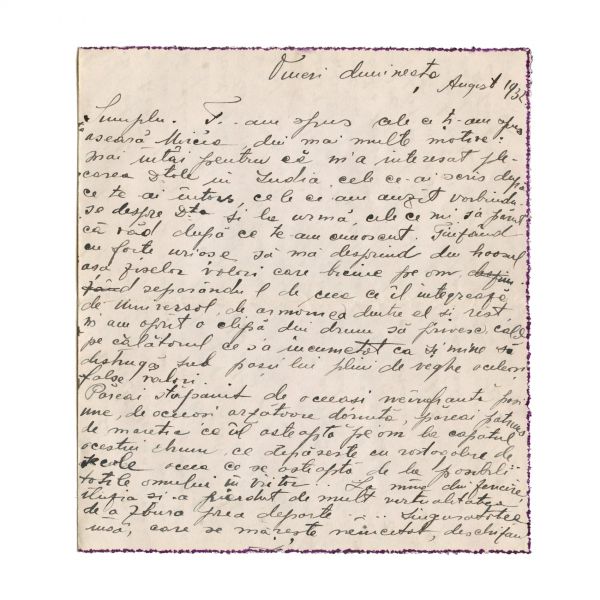 Vineri dimineața
August 1932
Simplu. Ți-am spus cele ce ți-am spus
aseară Mircea din mai multe motive:
mai întâi pentru că m'a interesat ple-
carea Dtale în India, cele ce-ai scris după
ce te-ai întors, cele ce am auzit vorbindu-
se despre Dta și la urmă, cele ce mi s'a părut
că văd după ce te-am cunoscut.
cu forțe să mă desprind din haosul
așa ziselor valori care țin pe om
separându-l de ceea ce îl integrează
de Universal, de armonica dintre el și rest
m'am oprit o clipă din drum să privesc calde
pe călătorul ce s'a încumetat ca și mine să
distrugă sub pașii lui plini de veghe aceleași
false valori.
Păreai stăpânit de aceeași neînfrântă pasi
une, de aceeași arzătoare dorință, păreai pătruns
de măreția ce îl așteaptă pe om la capătul
acestui drum, ce depășește cu rostogoliri de
secole aceea ce se așteaptă de la posibili
tățile omului în viitor... In mine din fericire
iluzia și-a pierdut de mult virtualitatea
de a zbura prea departe... Singurătatea
însă, care se mărește neîncetat, deschizân